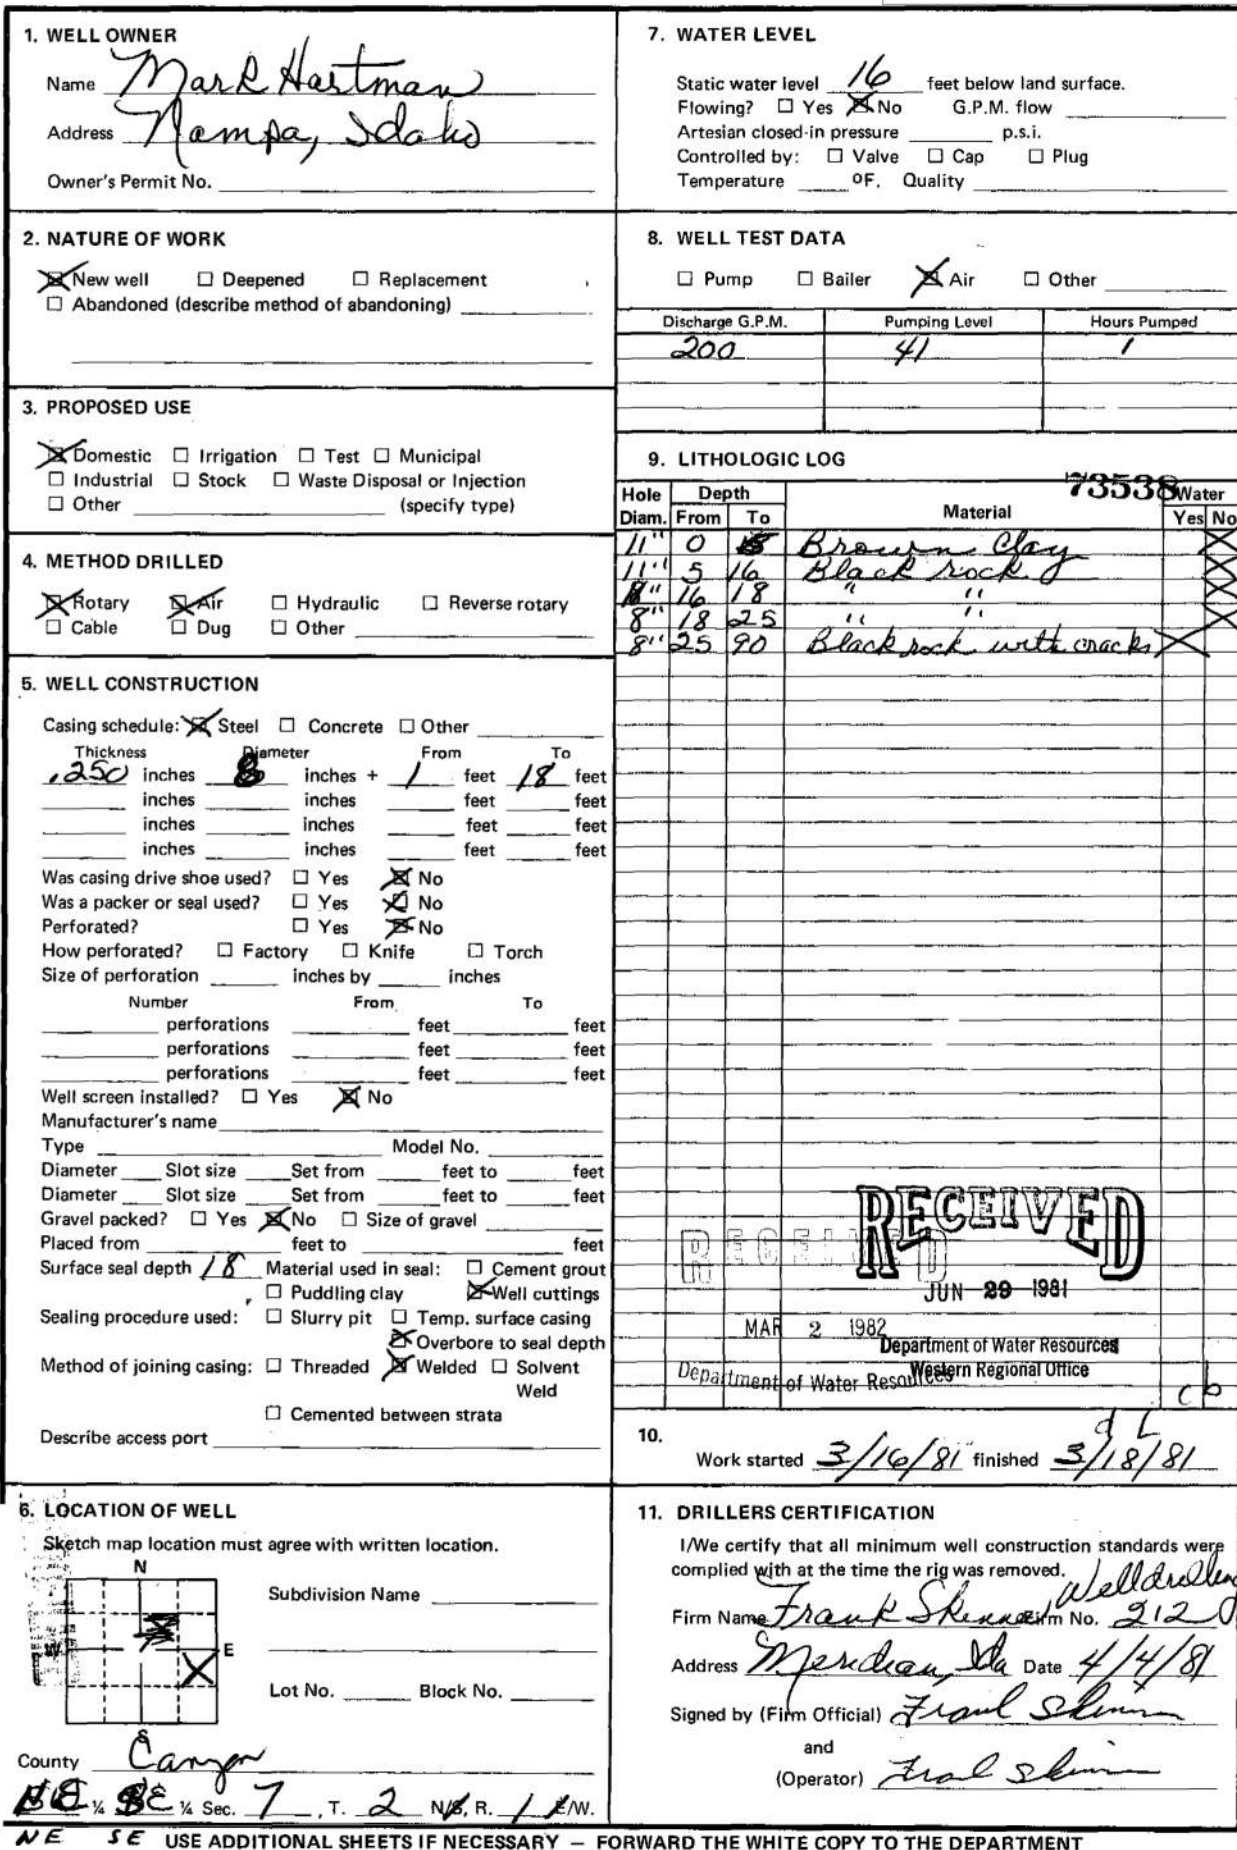 1. WELL OWNER
Name Mark Hartman
Address Nampa, Idaho
Owner's Permit No.
2. NATURE OF WORK
New well Deepened Replacement
Abandoned (describe method of abandoning)
3. PROPOSED USE
Domestic Irrigation Test Municipal
Industrial Stock Waste Disposal or Injection
Other (specify type)
4. METHOD DRILLED
Rotary Air Hydraulic Reverse rotary
Cable Dug Other
5. WELL CONSTRUCTION
Casing schedule: Steel Concrete Other
Thickness Diameter From To
.250 inches 8 inches + 1 feet 18 feet
inches inches feet feet
inches inches feet feet
inches inches feet feet
Was casing drive shoe used? Yes No
Was a packer or seal used? Yes No
Perforated? Yes No
How perforated? Factory Knife Torch
Size of perforation inches by inches
Number From To
perforations feet feet
perforations feet feet
perforations feet feet
Well screen installed? Yes No
Manufacturer's name
Type Model No.
Diameter Slot size Set from feet to feet
Diameter Slot size Set from feet to feet
Gravel packed? Yes No Size of gravel
Placed from feet to feet
Surface seal depth 18 Material used in seal: Cement grout
Puddling clay Well cuttings
Sealing procedure used: Slurry pit Temp. surface casing
Overbore to seal depth
Method of joining casing: Threaded Welded Solvent
Weld
Cemented between strata
Describe access port
6. LOCATION OF WELL
Sketch map location must agree with written location.
N
Subdivision Name
W E
Lot No. Block No.
S
County Canyon
¼ SE ¼ Sec. 7, T. 2 N/S, R. 1 E/W.
NE SE
7. WATER LEVEL
Static water level 16 feet below land surface.
Flowing? Yes No G.P.M. flow
Artesian closed-in pressure p.s.i.
Controlled by: Valve Cap Plug
Temperature ºF. Quality
8. WELL TEST DATA
Pump Bailer Air Other
Discharge G.P.M. Pumping Level Hours Pumped
200 41 1
9. LITHOLOGIC LOG
73538
Hole Depth Material Water
Diam. From To Yes No
11" 0 5 Brown Clay
11" 5 16 Black rock
16 18 " "
8" 18 25 " "
8" 25 90 Black rock with cracks
RECEIVED
JUN 29 1981
Department of Water Resources
Western Regional Office
RECEIVED
MAR 2 1982
Department of Water Resources
10.
Work started 3/16/81 finished 3/18/81
11. DRILLERS CERTIFICATION
I/We certify that all minimum well construction standards were
complied with at the time the rig was removed.
Firm Name Frank Skinner Firm No. 212
Address Meridian, Ida Date 4/4/81
Signed by (Firm Official) Frank Skinner
and
(Operator) Frank Skinner
USE ADDITIONAL SHEETS IF NECESSARY – FORWARD THE WHITE COPY TO THE DEPARTMENT